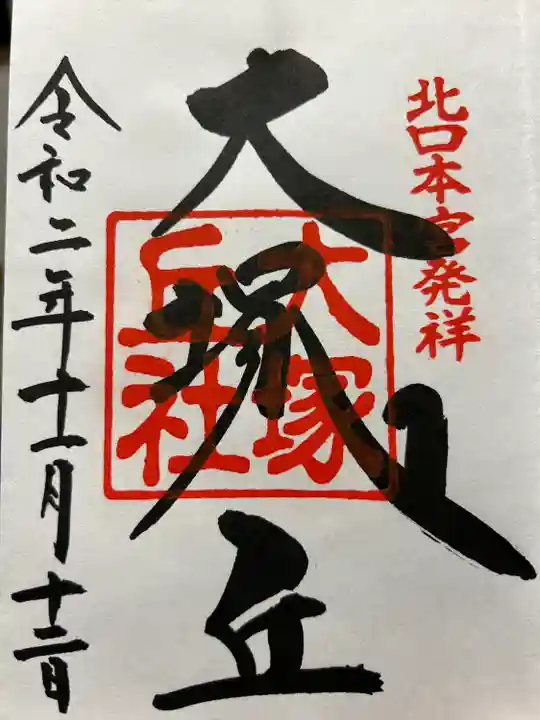 北口本宮発祥
大塚丘
大塚
丘社
令和二年十一月十二日